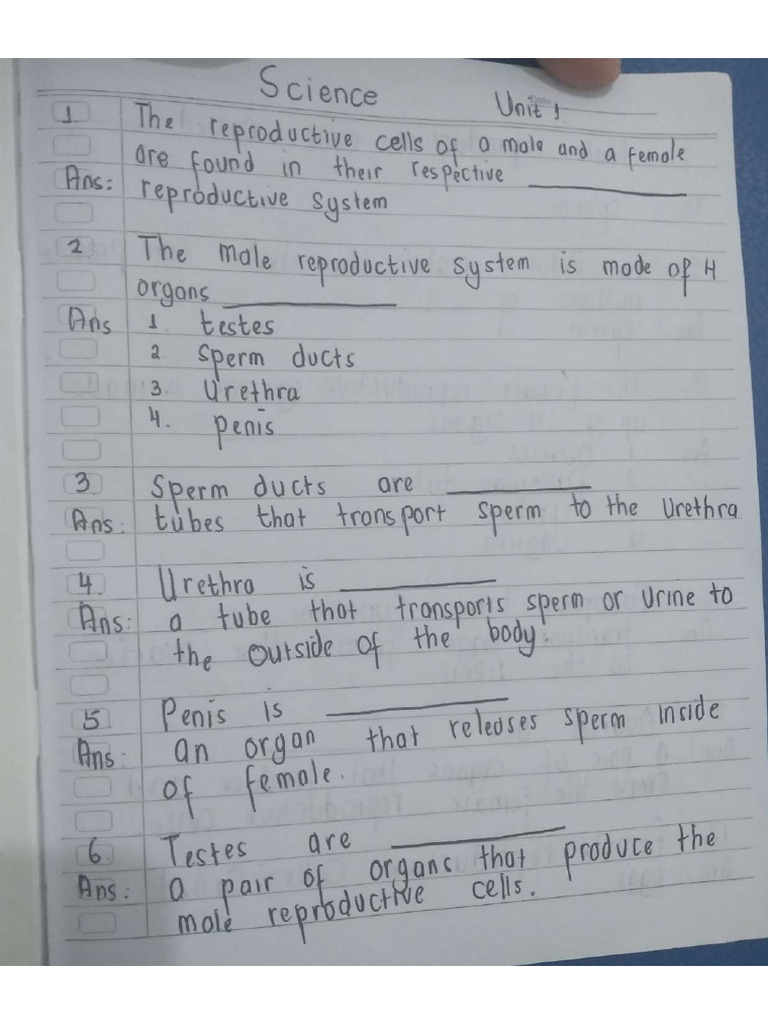 Science
Unit 1
1. The reproductive cells of a male and a female
are found in their respective __________
Ans: reproductive system
2 The male reproductive system is made of 4
organs __________
Ans 1 testes
2 Sperm ducts
3. Urethra
4. penis
3 Sperm ducts are __________
Ans: tubes that transport sperm to the Urethra
4 Urethra is __________
Ans: a tube that transports sperm or urine to
the outside of the body.
5 Penis is __________
Ans: an organ that releases sperm inside
of female.
6 Testes are __________
Ans: a pair of organs that produce the
male reproductive cells.